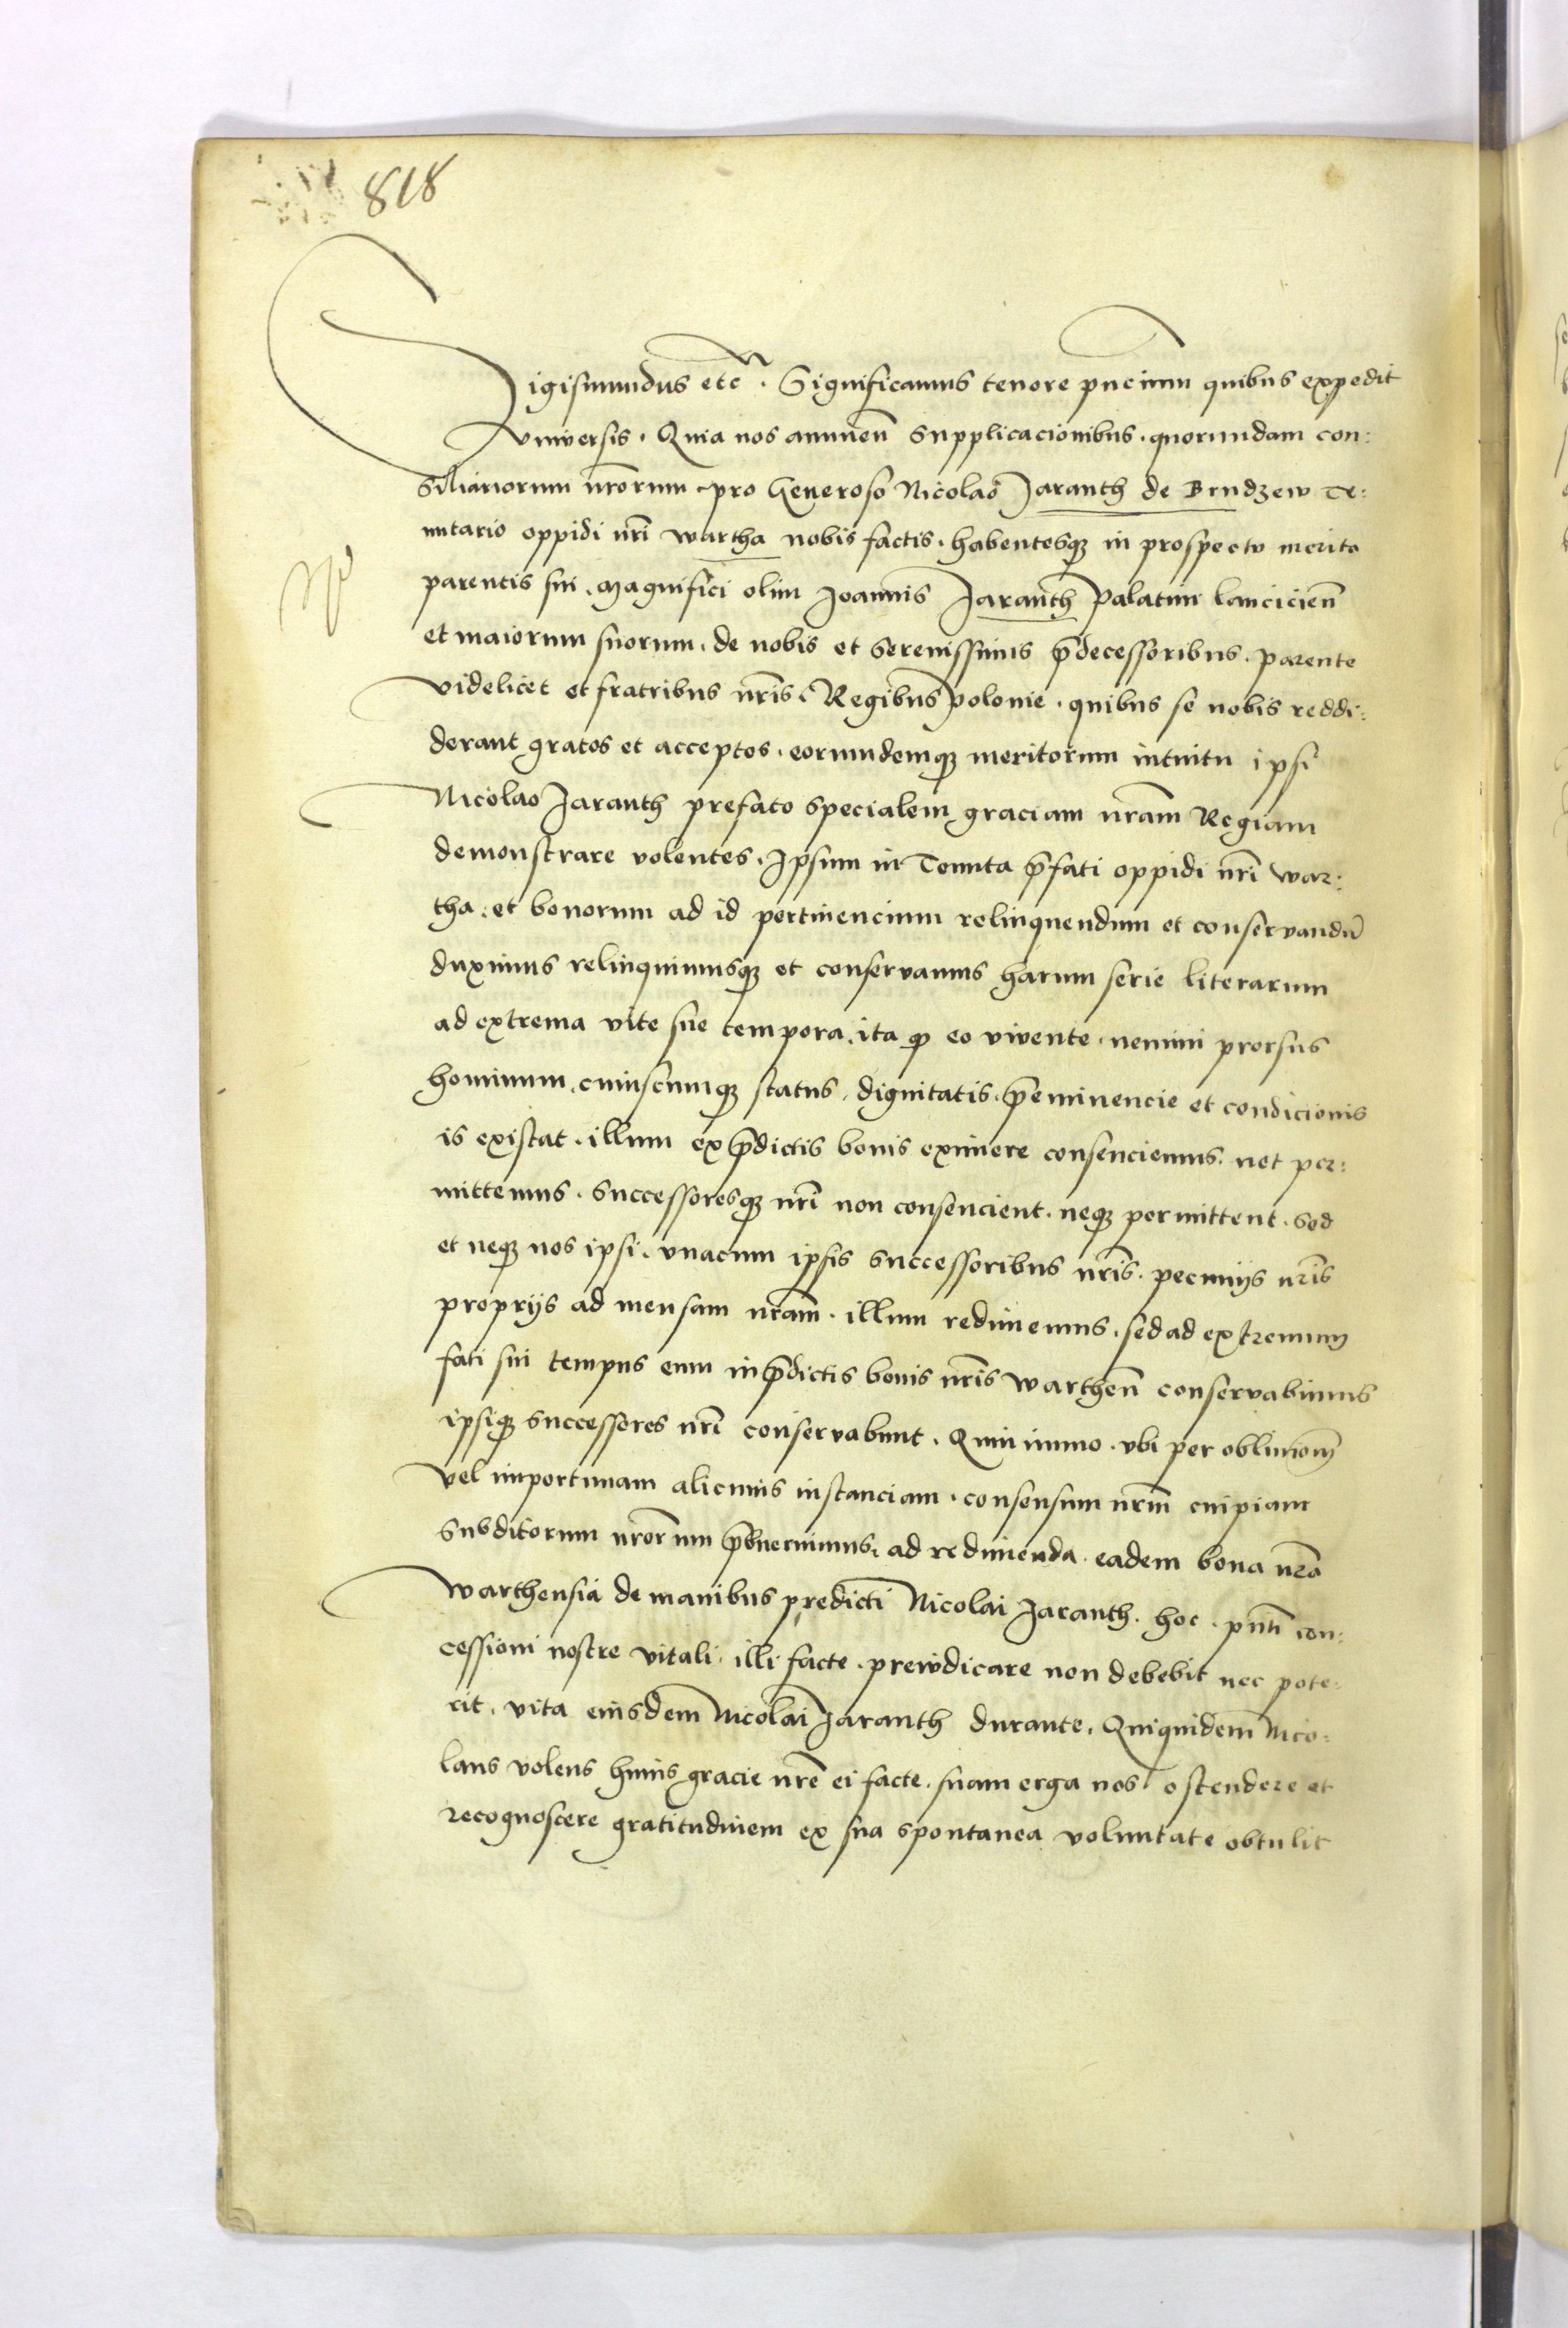 818
Sigismundus etc̃. Significamus tenore pñcium quibus expedit
Vniversis. Quia nos annueñ supplicacionibus. quorundam con:
siliariorum nr̃orum. pro Generoso Nicolao Jaranth de Brudzew Te:
nutario oppidi nr̃i wartha nobis factis. habentesqȝ in prospectu merita
parentis sui. Magnifici olim Joannis Jaranth Palatini lancicieñ
et maiorum suorum. de nobis et Serenissimis p̃decessoribus. parente
videlicet et fratribus nr̃is. Regibus Polonie. quibus se nobis reddi:
derant gratos et acceptos. eorumdemqȝ meritorum intuitu ipsi
Nicolao Jaranth prefato specialem graciam nr̃am Regiam
demonstrare volentes. Ipsum in Tenuta p̃fati oppidi nr̃i war:
tha. et bonorum ad id pertinencium relinquendum et conservandũ
duximus relinquimusqȝ et conservamus harum serie literarum
ad extrema vite sue tempora. ita ꝙ eo vivente. nemini prorsus
hominum. cuiuscumqȝ status. dignitatis. p̃eminencie et condicionis
is existat. illum ex p̃dictis bonis eximere consenciemus. nec per:
mittemus. Successoresqȝ nr̃i non consencient. neqȝ permittent. Sed
et neqȝ nos ipsi. vnacum ipsis successoribus nr̃is. pecunijs nr̃is
proprijs ad mensam nr̃am. illum redimemus. sed ad extremum
fati sui tempus eum in p̃dictis bonis nr̃is wartheñ conservabimus
ipsiqȝ successores nr̃i conservabunt. Quin immo. vbi per oblivionẽ
vel importunam alicuius instanciam. consensum nr̃m cuipiam
subditorum nr̃orum p̃buerimus. ad redimenda. eadem bona nr̃a
warthensia de manibus predicti Nicolai Jaranth. hoc. pñti con:
cessioni nostre vitali. illi facte. preiudicare non debebit nec pote:
rit. vita eiusdem Nicolai Jaranth durante. Quiquidem Nico:
laus volens huius gracie nr̃e ei facte. suam erga nos ostendere et
recognoscere gratitudinem ex sua spontanea voluntate obtulit